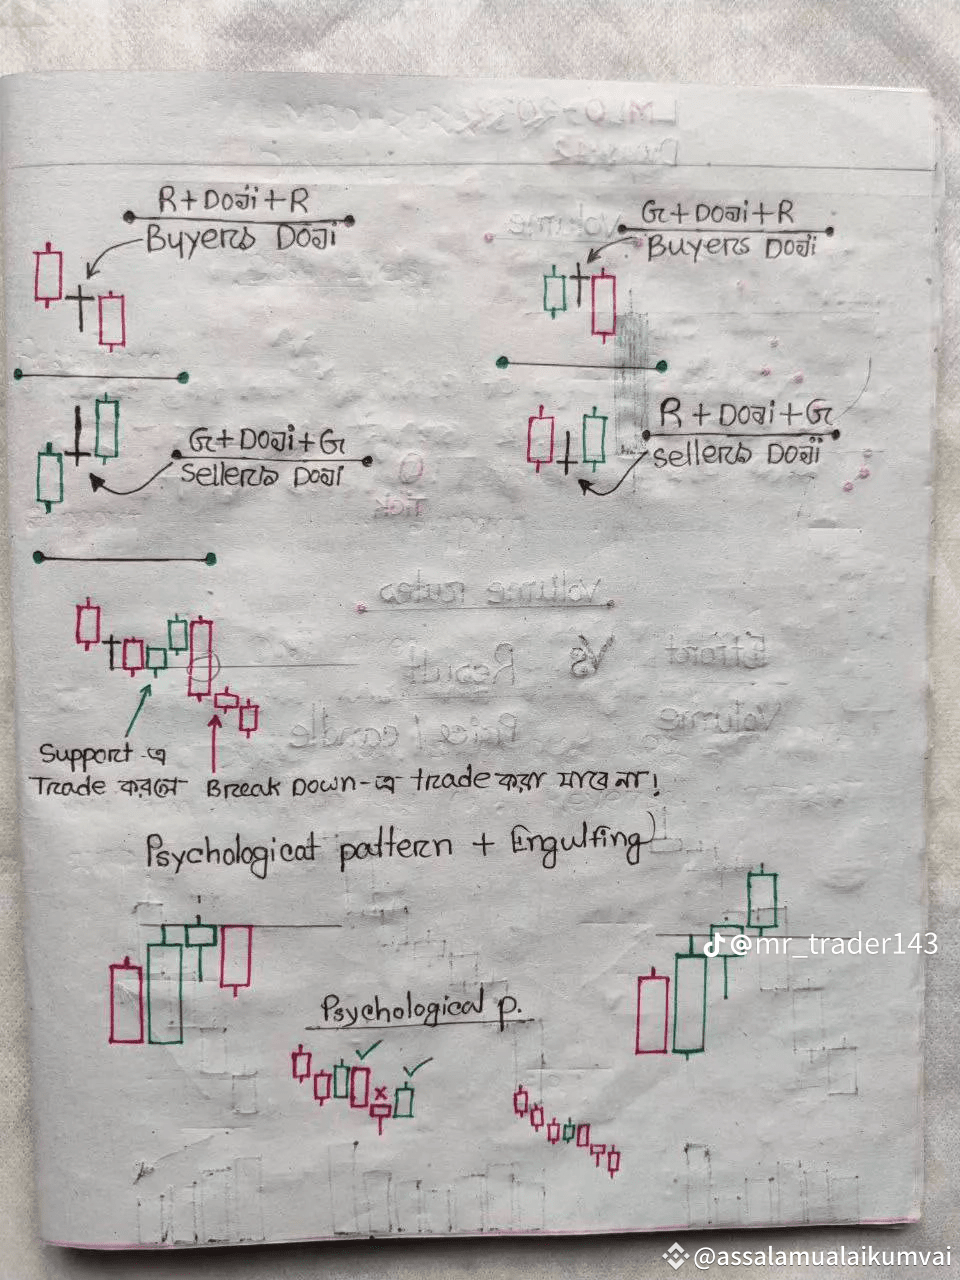 R+Doji+R
Buyers Doji
G+Doji+R
Buyers Doji
G+Doji+G
Sellers Doji
R+Doji+G
Sellers Doji
Support-এ
Trade করলে Break Down-এ trade করা যাবে না!
Psychological pattern + Engulfing
@mr_trader143
Psychological p.
@assalamualaikumvai